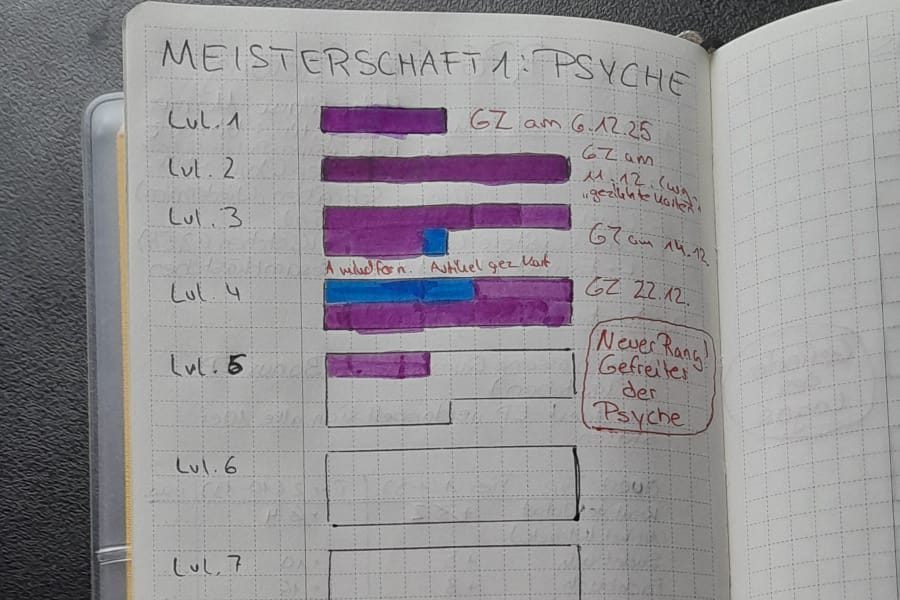 MEISTERSCHAFT 1: PSYCHE
Lvl. 1 GZ am 6.12.25
Lvl. 2 GZ am
11.12. (wg.
"gezinkte Karten"
Lvl. 3 GZ am 14.12.
Artikel gez. Kart
Lvl. 4 GZ 22.12.
Lvl. 5
Neuer Rang!
Gefreiter
der
Psyche
Lvl. 6
Lvl. 7